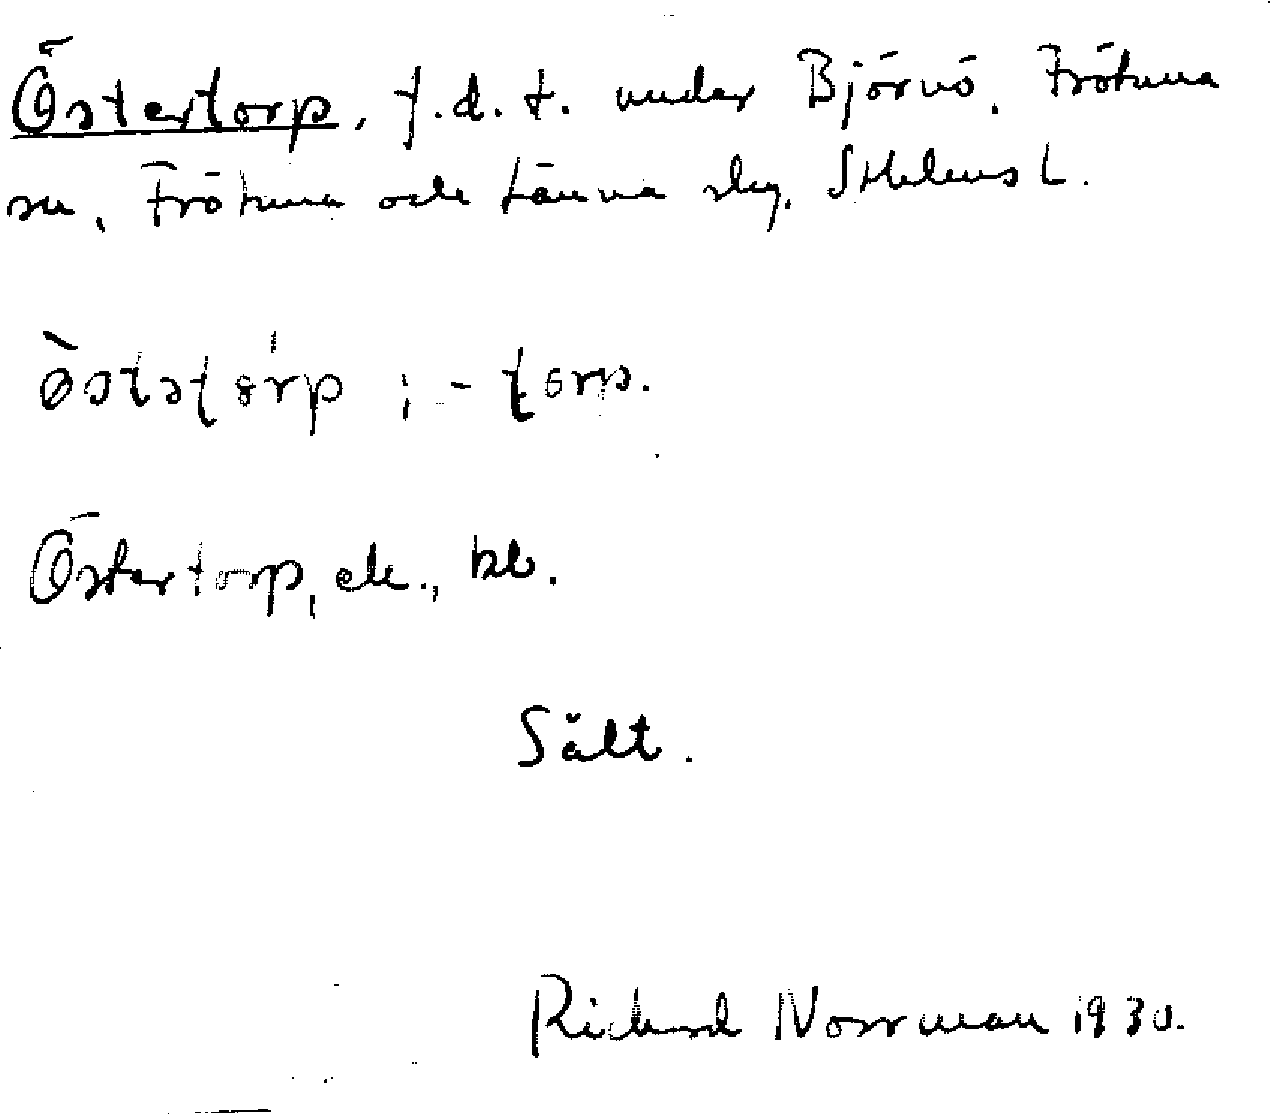 Östertorp, f.d.t. under Björnö, Frötuna
sn, Frötuna och Länna skg, Sthlms l.
òstətörp ; - torp.
Östertorp, ek., bl.
Sält.
Richard Norrman 1930.